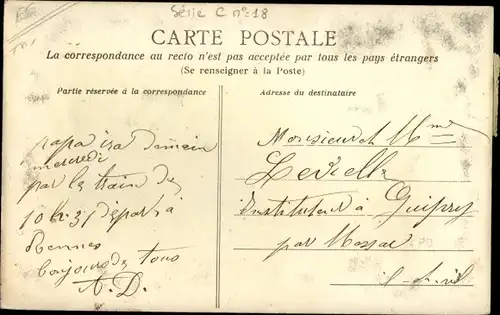 Série C n° 18
CARTE POSTALE
La correspondance au recto n'est pas acceptée par tous les pays étrangers
(Se renseigner à la Poste)
Partie réservée à la correspondance
Adresse du destinataire
papa ira demain
mercredi
par le train de
10 h. 31 départ à
Rennes
bonjours de tous
A. D.
Monsieur et Mme
Instituteur à Guipry
par Messac